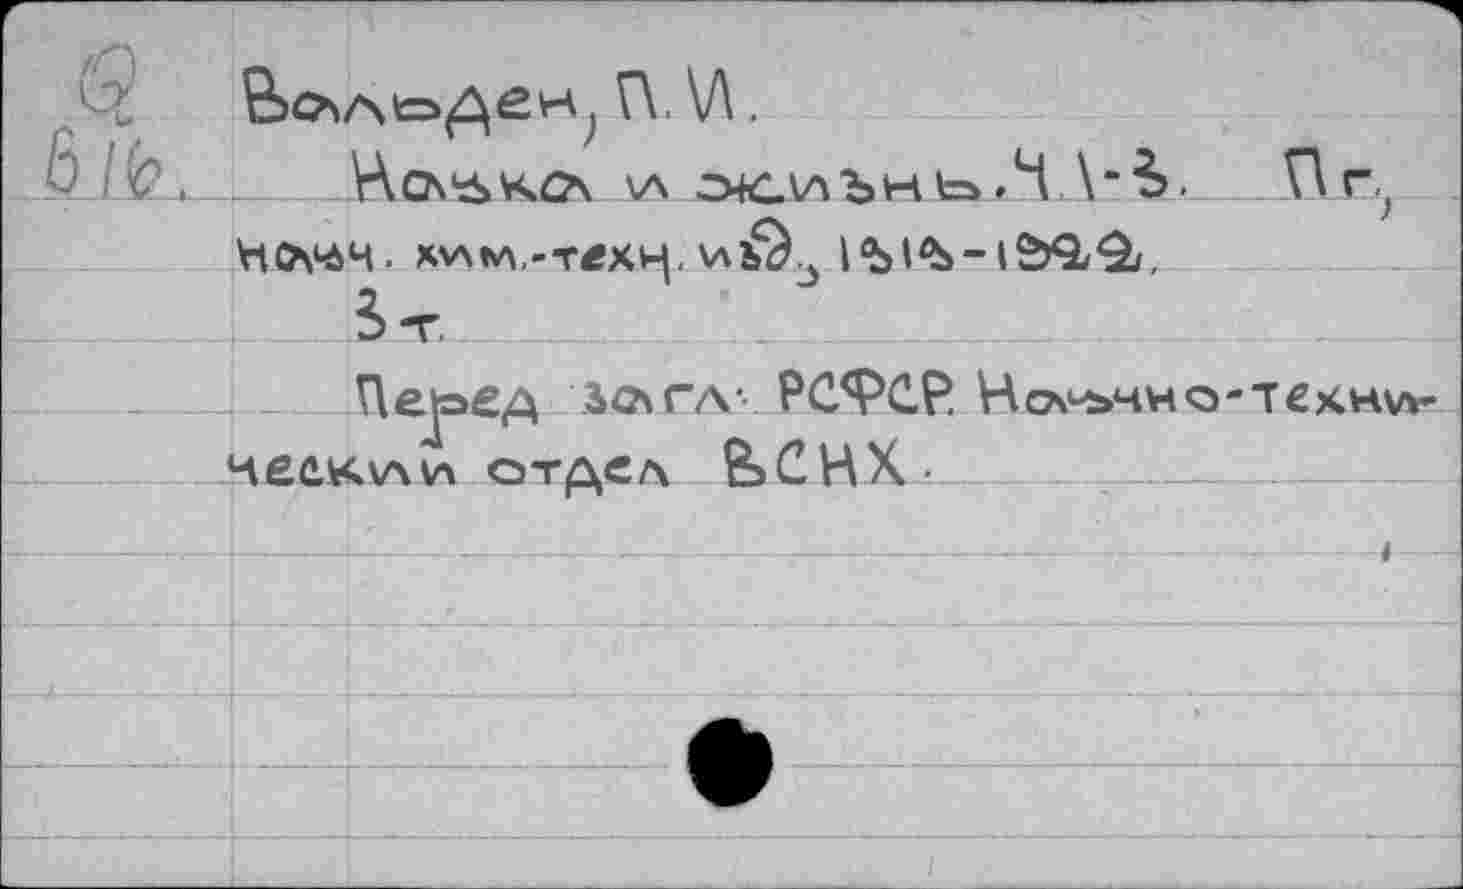 Q
B16.
Вальден, П. И.
Наука и жизнь. Ч. 1-3. Пг.,
науч. хим.-техн. изд., 1919-1922.
3 т.
Перед загл. РСФСР. Научно-техни-
ческий отдел ВСНХ.